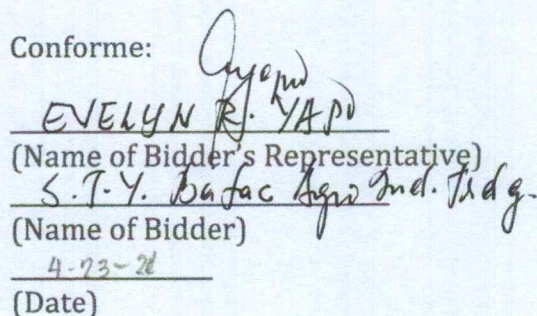 Conforme:
EVELYN R. YAP
(Name of Bidder's Representative)
S.T.Y. Agro Ind. Trdg.
(Name of Bidder)
4-23-
(Date)